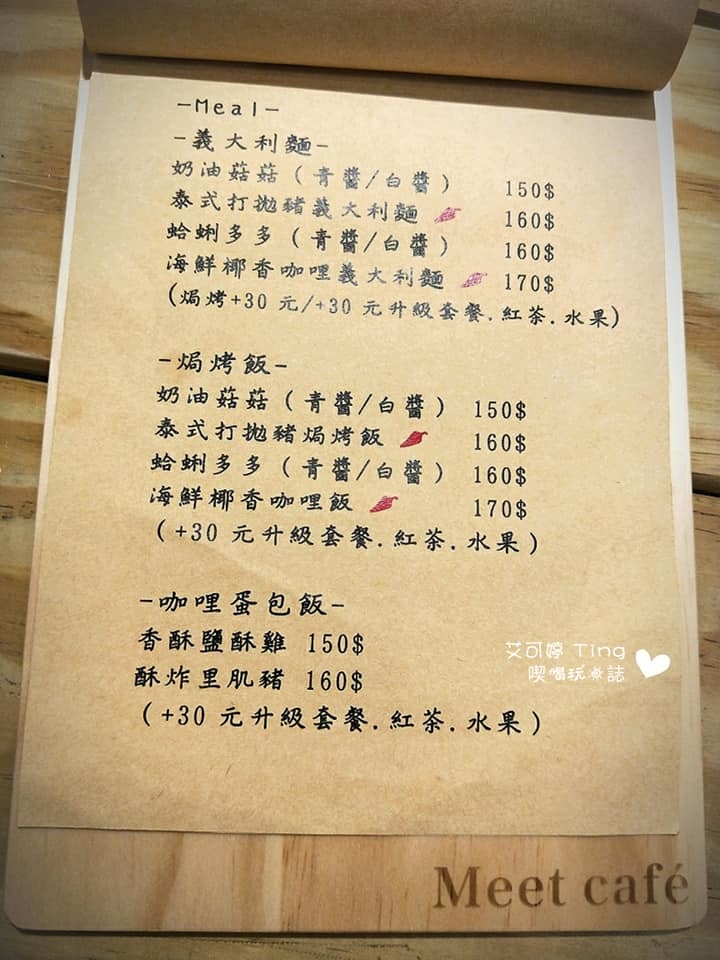 -Meal-
-義大利麵-
奶油菇菇(青醬/白醬) 150$
泰式打拋豬義大利麵 160$
蛤蜊多多(青醬/白醬) 160$
海鮮椰香咖哩義大利麵 170$
(焗烤+30元/+30元升級套餐.紅茶.水果)
-焗烤飯-
奶油菇菇(青醬/白醬) 150$
泰式打拋豬焗烤飯 160$
蛤蜊多多(青醬/白醬) 160$
海鮮椰香咖哩飯 170$
(+30元升級套餐.紅茶.水果)
-咖哩蛋包飯-
香酥鹽酥雞 150$
酥炸里肌豬 160$
(+30元升級套餐.紅茶.水果)
艾可婷 Ting
喫喝玩樂誌
Meet café